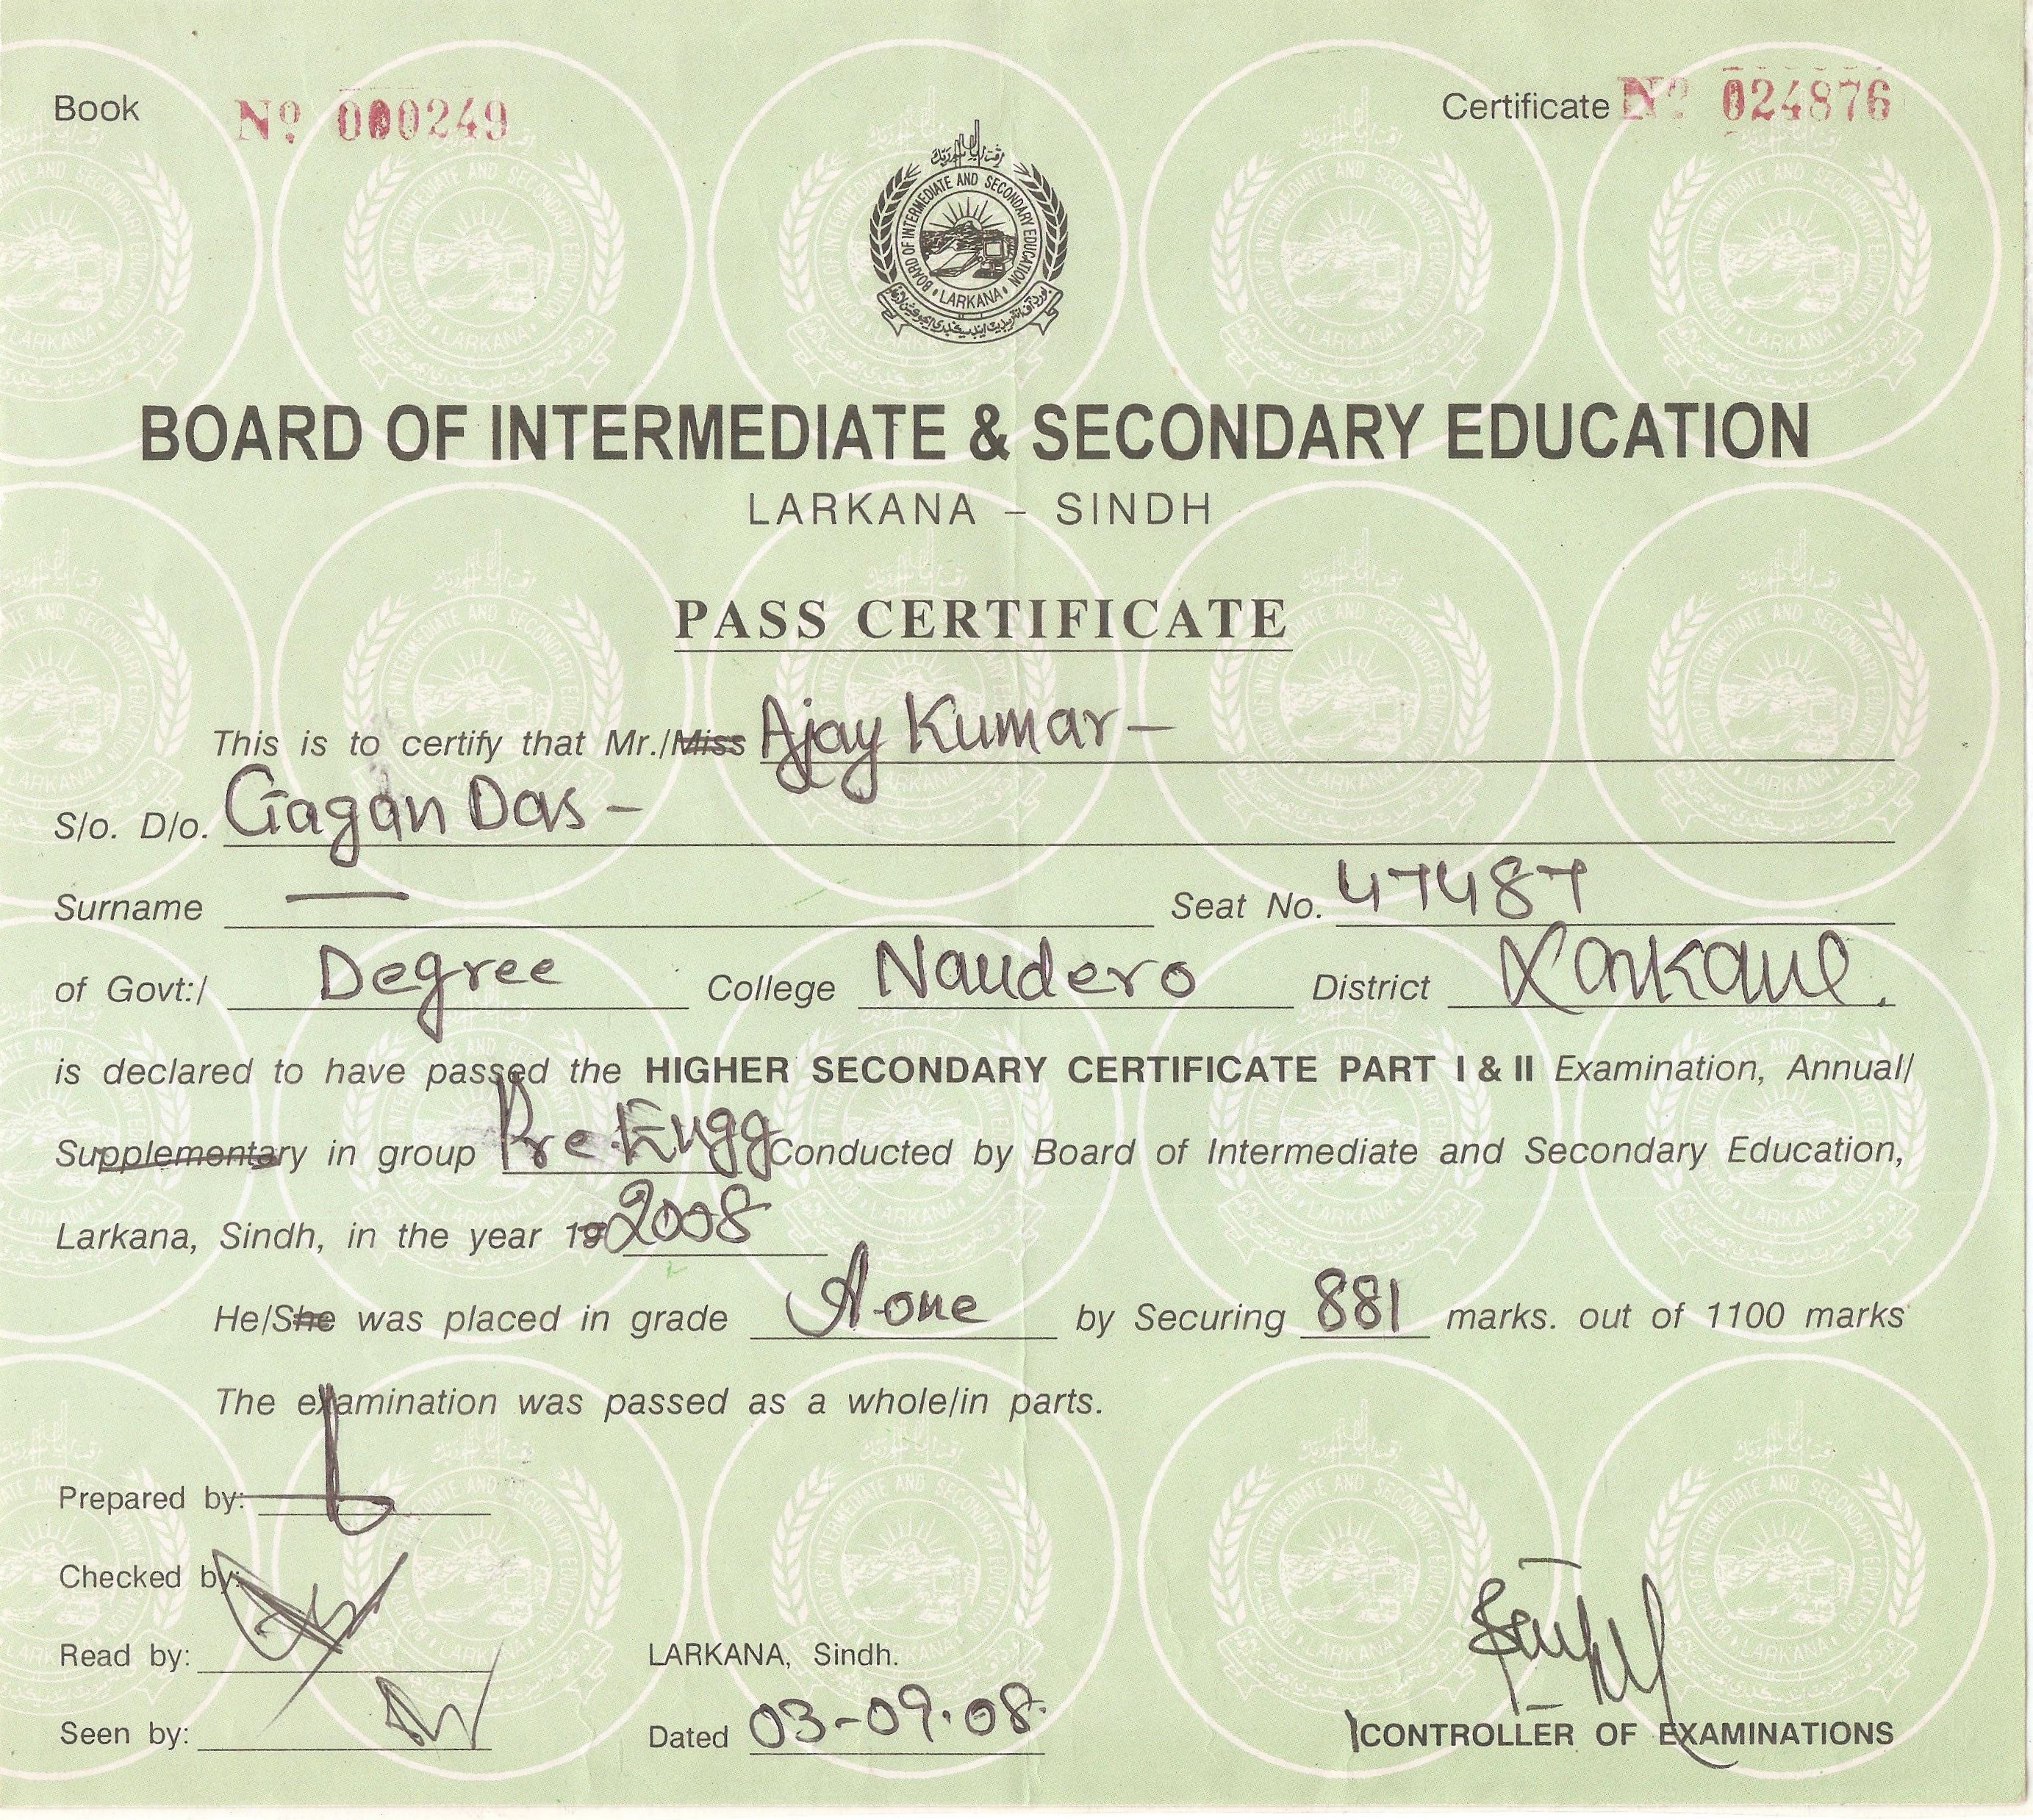 Book Nº 000249 Certificate Nº 024876
BOARD OF INTERMEDIATE AND SECONDARY EDUCATION
LARKANA
BOARD OF INTERMEDIATE & SECONDARY EDUCATION
LARKANA – SINDH
PASS CERTIFICATE
This is to certify that Mr./Miss Ajay Kumar –
S/o. D/o. Gagan Das –
Surname — Seat No. 47487
of Govt:/ Degree College Naudero District Larkana.
is declared to have passed the HIGHER SECONDARY CERTIFICATE PART I & II Examination, Annual/
Supplementary in group Pre.Engg Conducted by Board of Intermediate and Secondary Education,
Larkana, Sindh, in the year 19 2008
He/She was placed in grade A-one by Securing 881 marks. out of 1100 marks
The examination was passed as a whole/in parts.
Prepared by:
Checked by:
Read by: LARKANA, Sindh.
Seen by: Dated 03-09.08.
CONTROLLER OF EXAMINATIONS